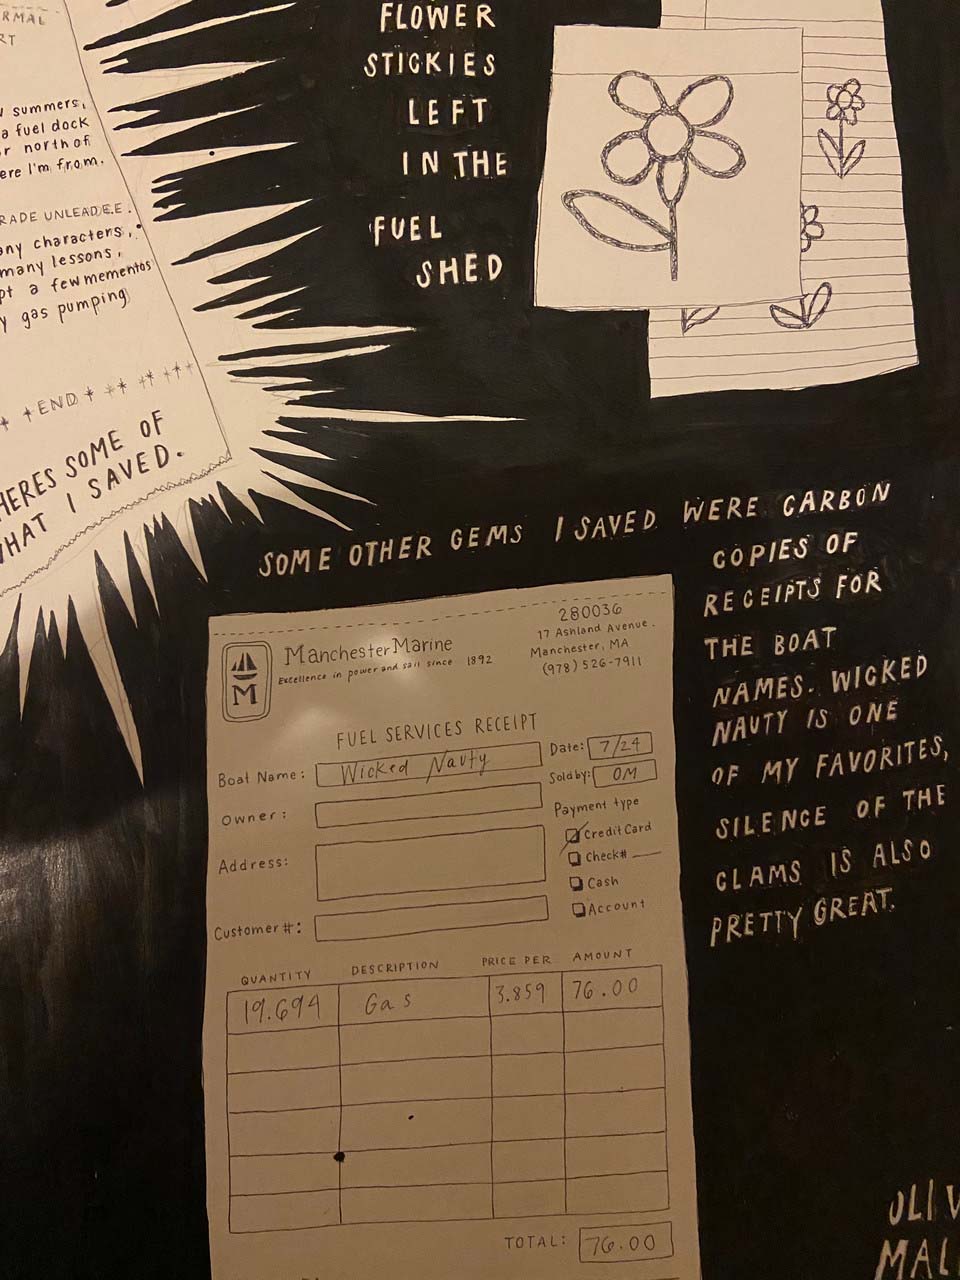 RMAL
RT
summers,
a fuel dock
r north of
ere I'm from.
RADE UNLEADED.
any characters,
many lessons,
pt a few mementos
y gas pumping
* * END * ** ** ***
HERES SOME OF
WHAT I SAVED.
FLOWER
STICKIES
LEFT
IN THE
FUEL
SHED
SOME OTHER GEMS I SAVED WERE CARBON
COPIES OF
RECEIPTS FOR
THE BOAT
NAMES. WICKED
NAUTY IS ONE
OF MY FAVORITES,
SILENCE OF THE
CLAMS IS ALSO
PRETTY GREAT.
M
Manchester Marine
Excellence in power and sail since 1892
280036
17 Ashland Avenue.
Manchester, MA
(978) 526-7911
FUEL SERVICES RECEIPT
Boat Name: Wicked Nauty
Date: 7/24
Sold by: OM
Owner:
Payment type
Credit Card
Check#
Cash
Account
Address:
Customer #:
QUANTITY DESCRIPTION PRICE PER AMOUNT
19.694 Gas 3.859 76.00
TOTAL: 76.00
OLIV
MAL